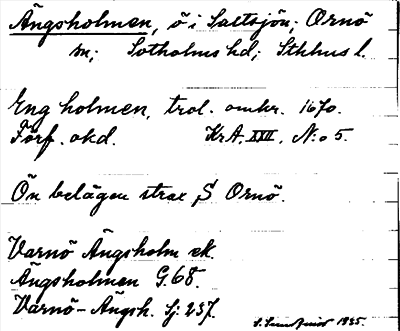 Ängsholmen, ö i Saltsjön; Ornö
sn; Sotholms hd; Sthlms l.
Eng holmen, trol. omkr. 1670.
Förf. okd. Kr.A. XXII, N:o 5.
Ön belägen strax S Ornö.
Varnö Ängsholm ek.
Ängsholmen G.68.
Varnö-Ängsh. Sj: 237.
1935.